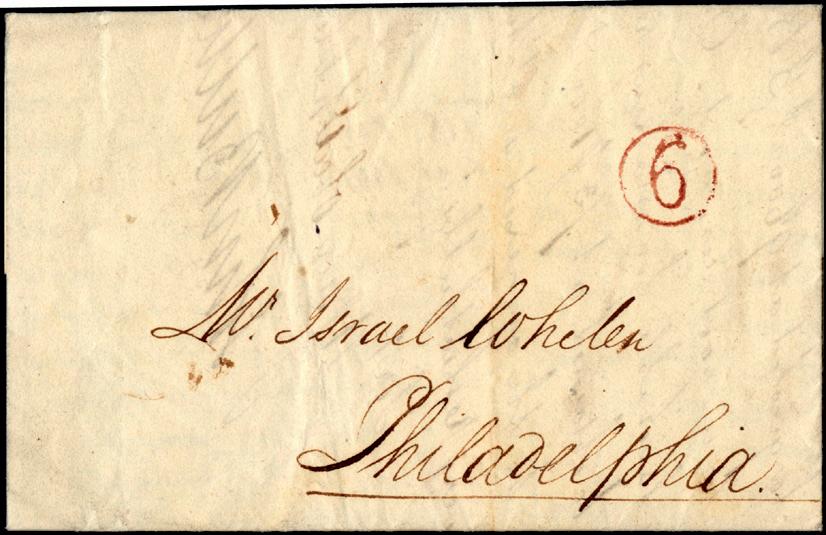 6
Mr. Israel Whelen
Philadelphia.